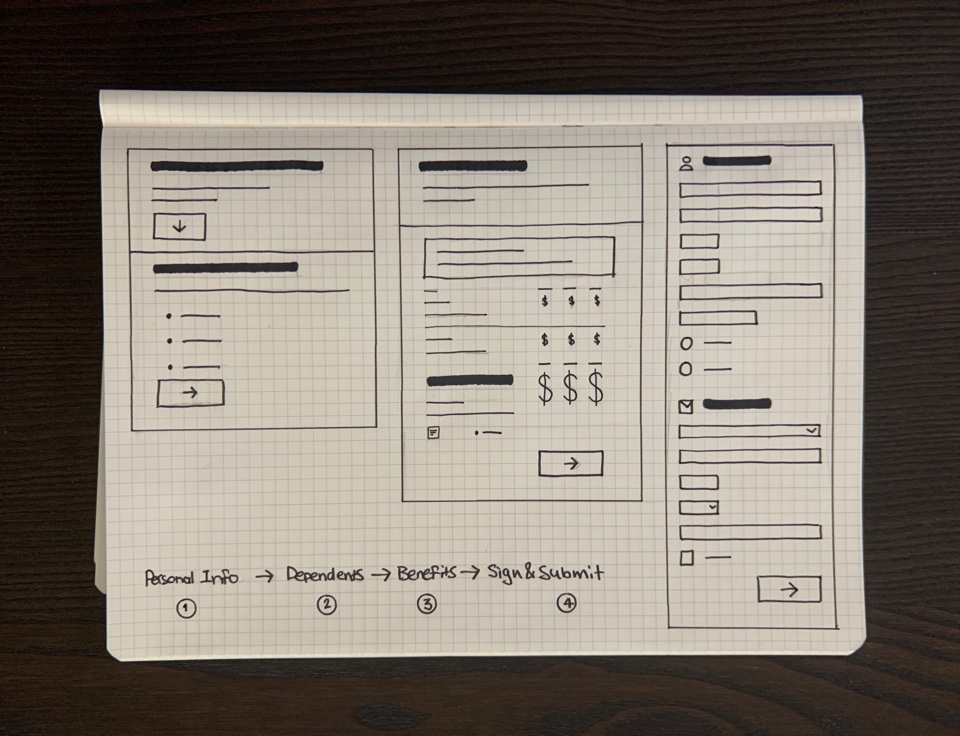 $ $ $
$ $ $
$ $ $
Personal Info → Dependents → Benefits → Sign & Submit
1 2 3 4